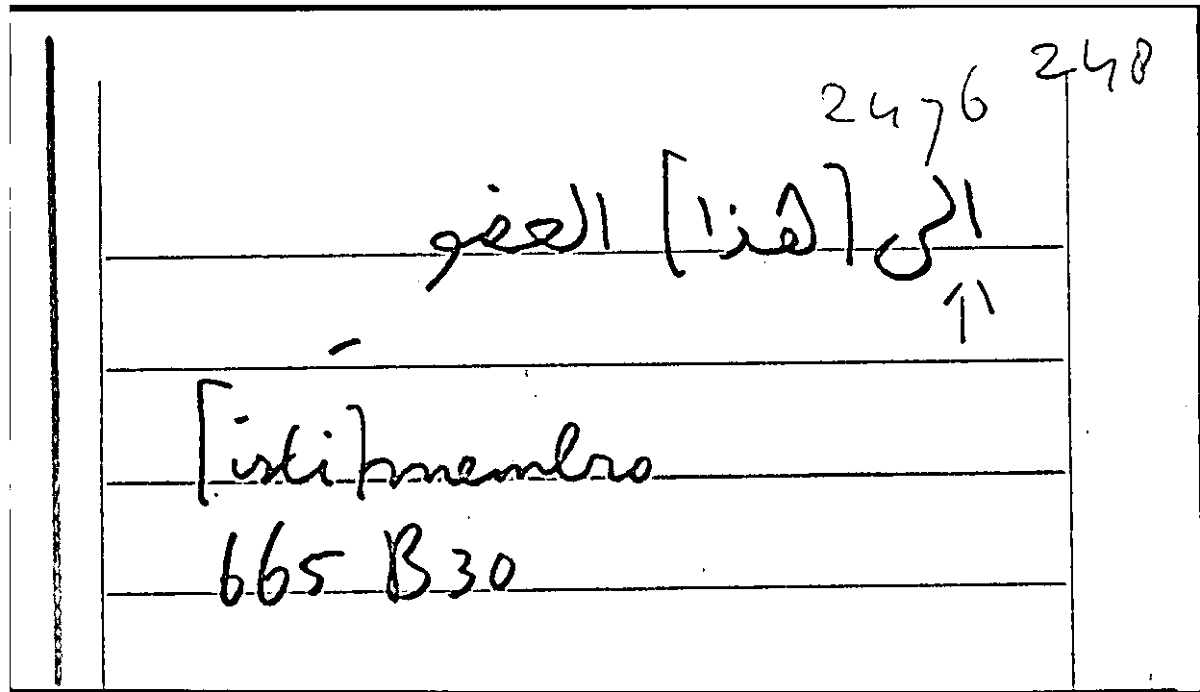 248
2476
الى [هذا] العضو
↑
[isti] membro
665 B30